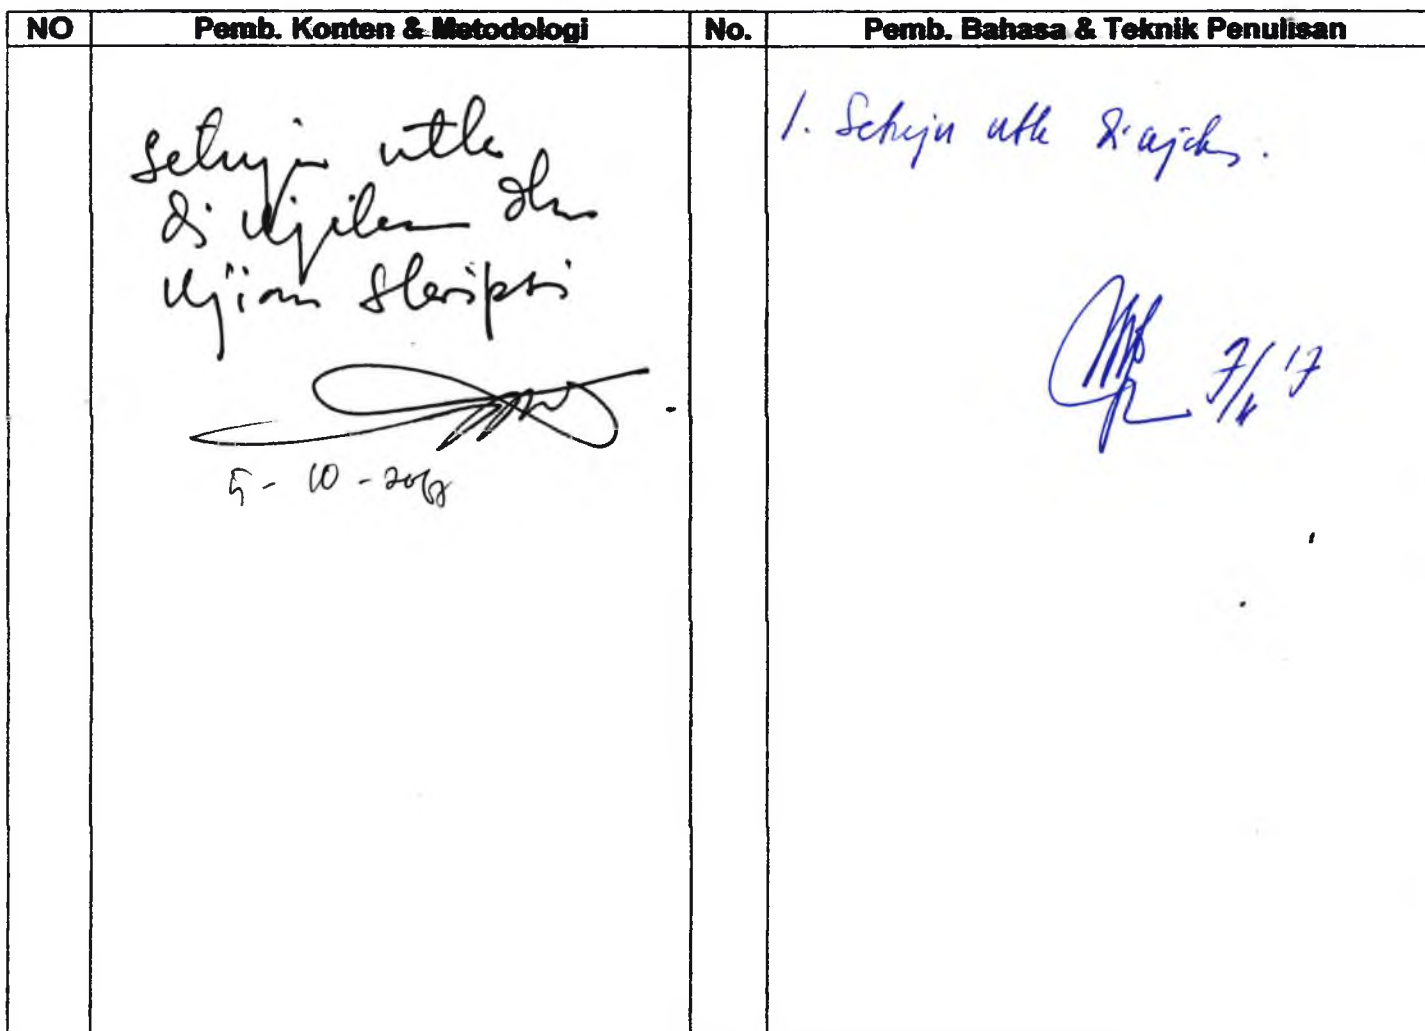 NO Pemb. Konten & Metodologi No. Pemb. Bahasa & Teknik Penulisan
Setuju utk
di Ujikan dlm
Ujian Skripsi
5 - 10 - 2017
1. Setuju utk diajukan.
7/ '17